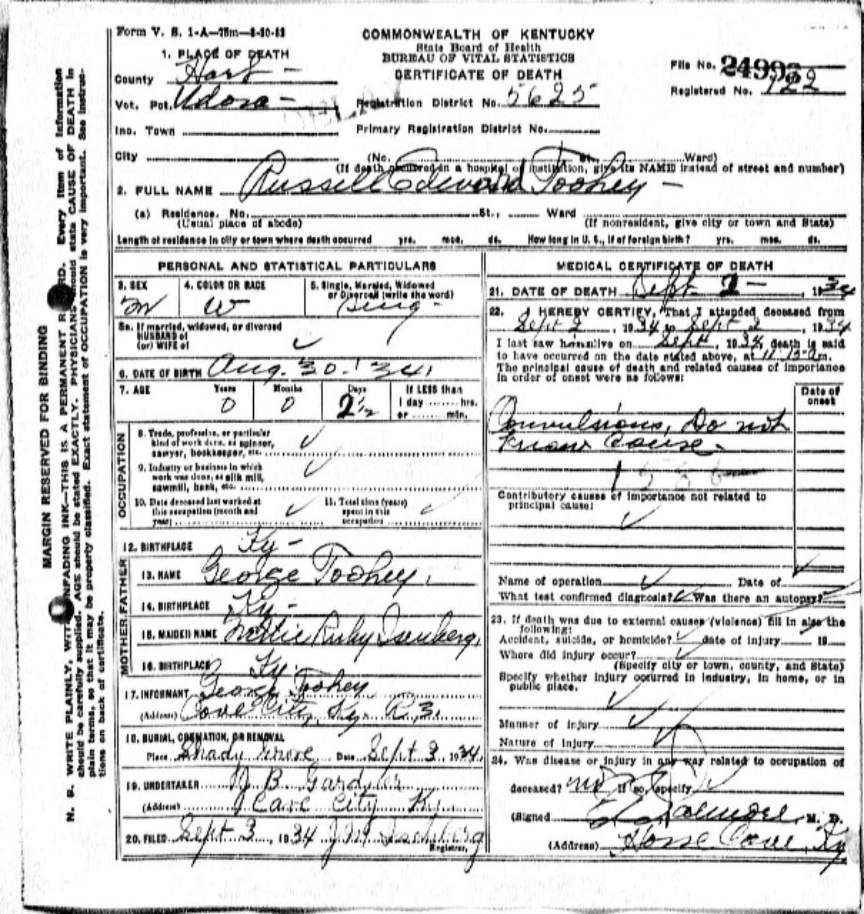 Form V. S. 1-A—75m—8-30-32
COMMONWEALTH OF KENTUCKY
State Board of Health
BUREAU OF VITAL STATISTICS
CERTIFICATE OF DEATH
1. PLACE OF DEATH
County Hart
Vot. Pct. Udora
Inc. Town
City
Registration District No. 5625
Primary Registration District No.
File No. 2499
Registered No. 122
(No. St. Ward)
(If death occurred in a hospital or institution, give its NAME instead of street and number)
2. FULL NAME Russell Edward Toohey
(a) Residence. No. St., Ward
(Usual place of abode) (If nonresident, give city or town and State)
Length of residence in city or town where death occurred yrs. mos. ds. How long in U. S., if of foreign birth? yrs. mos. ds.
PERSONAL AND STATISTICAL PARTICULARS
3. SEX 4. COLOR OR RACE 5. Single, Married, Widowed
or Divorced (write the word)
M W Sing
5a. If married, widowed, or divorced
HUSBAND of
(or) WIFE of
6. DATE OF BIRTH Aug. 30. '34
7. AGE Years Months Days If LESS than
1 day hrs.
or min.
0 0 2½
OCCUPATION
8. Trade, profession, or particular
kind of work done, as spinner,
sawyer, bookkeeper, etc.
9. Industry or business in which
work was done, as silk mill,
sawmill, bank, etc.
10. Date deceased last worked at
this occupation (month and
year)
11. Total time (years)
spent in this
occupation
12. BIRTHPLACE Ky
FATHER
13. NAME George Toohey
14. BIRTHPLACE Ky
MOTHER
15. MAIDEN NAME Ruby Isenberg
16. BIRTHPLACE Ky
17. INFORMANT George Toohey
(Address) Cave City, Ky. R. 3.
18. BURIAL, CREMATION, OR REMOVAL
Place Shady Grove Date Sept 3, 1934
19. UNDERTAKER B Gardner
(Address) Cave City Ky.
20. FILED Sept 3, 1934 Isenberg
Registrar.
MEDICAL CERTIFICATE OF DEATH
21. DATE OF DEATH Sept 2 1934
22. I HEREBY CERTIFY, That I attended deceased from
Sept 2, 1934 to Sept 2, 1934
I last saw him alive on Sept, 1934, death is said
to have occurred on the date stated above, at 11:15 m.
The principal cause of death and related causes of importance
in order of onset were as follows:
Date of
onset
Convulsions, Do not
know cause
Contributory causes of importance not related to
principal cause:
Name of operation Date of
What test confirmed diagnosis? Was there an autopsy?
23. If death was due to external causes (violence) fill in also the
following:
Accident, suicide, or homicide? date of injury 19
Where did injury occur?
(Specify city or town, county, and State)
Specify whether injury occurred in industry, in home, or in
public place.
Manner of injury
Nature of injury
24. Was disease or injury in any way related to occupation of
deceased? no If so, specify
(Signed) M. D.
(Address) Horse Cave, Ky
MARGIN RESERVED FOR BINDING
N. B. WRITE PLAINLY, WITH UNFADING INK—THIS IS A PERMANENT RECORD. Every item of information
should be carefully supplied. AGE should be stated EXACTLY. PHYSICIANS should state CAUSE OF DEATH in
plain terms, so that it may be properly classified. Exact statement of OCCUPATION is very important. See instruc-
tions on back of certificate.